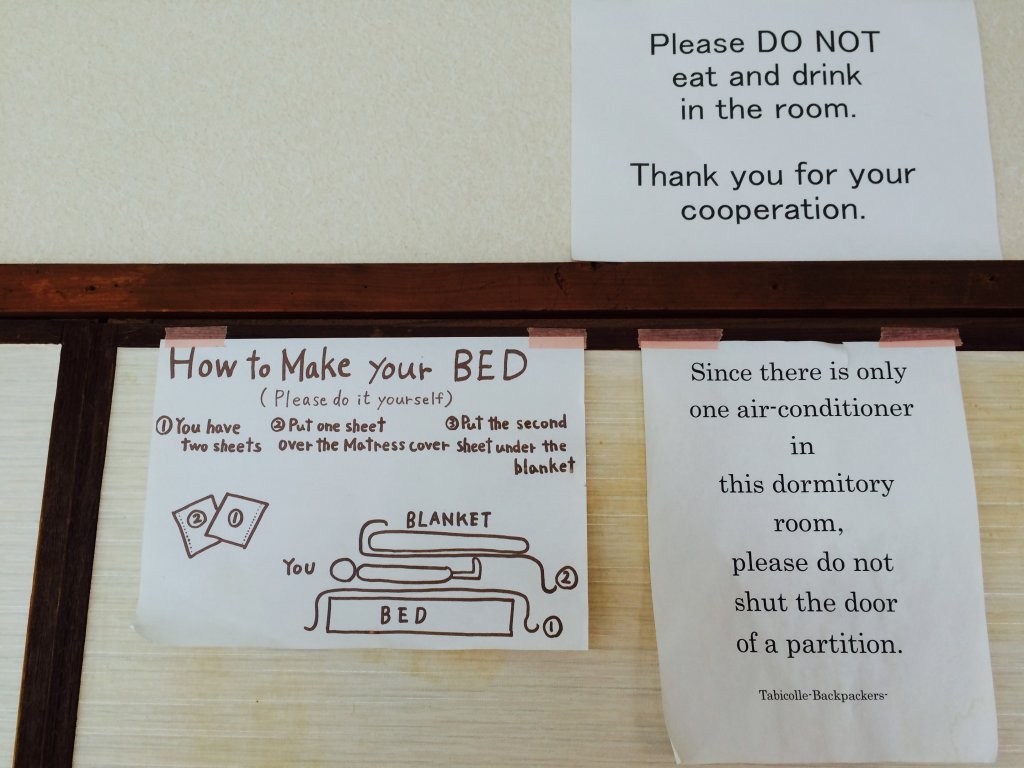 Please DO NOT
eat and drink
in the room.
Thank you for your
cooperation.
How to Make your BED
(Please do it yourself)
① You have
two sheets
② Put one sheet
over the Matress cover
③ Put the second
sheet under the
blanket
② ①
BLANKET
YOU
②
BED
①
Since there is only
one air-conditioner
in
this dormitory
room,
please do not
shut the door
of a partition.
Tabicolle-Backpackers-